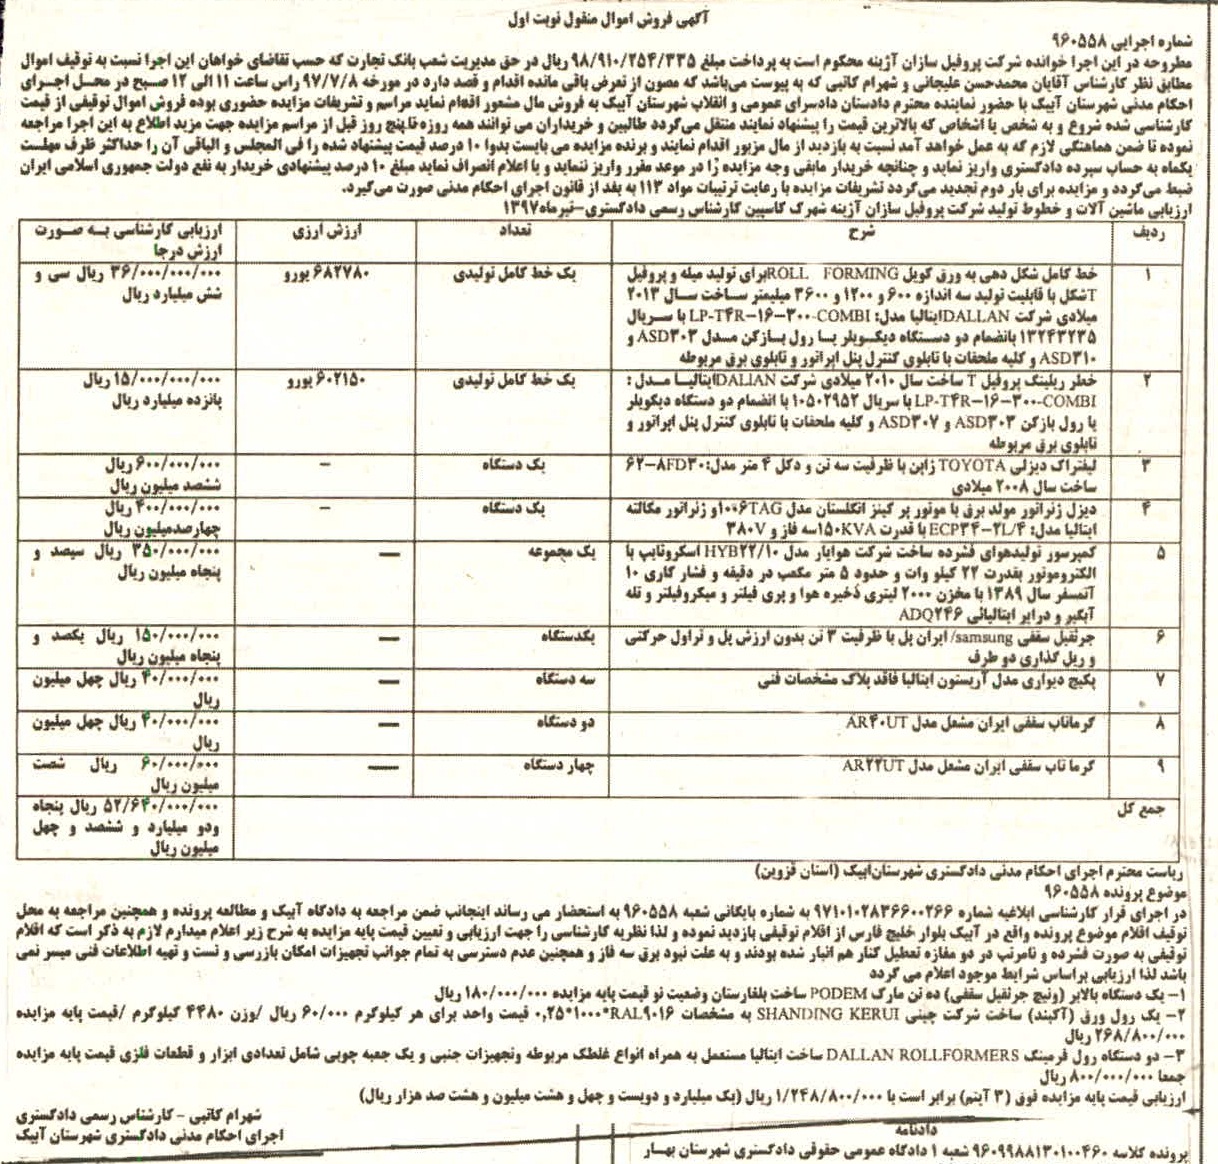 آگهی فروش اموال منقول نوبت اول
شماره اجرایی ۹۶۰۵۵۸
مطروحه در این اجرا خوانده شرکت پروفیل سازان آژینه محکوم است به پرداخت مبلغ ۹۸/۹۱۰/۲۵۴/۳۳۵ ریال در حق مدیریت شعب بانک تجارت که حسب تقاضای خواهان این اجرا نسبت به توقیف اموال
مطابق نظر کارشناسی آقایان محمدحسن علیجانی و شهرام کاتبی که به پیوست می‌باشد که مصون از تعرض باقی مانده اقدام و قصد دارد در مورخه ۹۷/۷/۸ راس ساعت ۱۱ الی ۱۲ صبح در محل اجرای
احکام مدنی شهرستان آبیک با حضور نماینده محترم دادستان دادسرای عمومی و انقلاب شهرستان آبیک به فروش مال مشعور اقدام نماید مراسم و تشریفات مزایده حضوری بوده فروش اموال توقیفی از قیمت
کارشناسی شده شروع و به شخص یا اشخاص که بالاترین قیمت را پیشنهاد نمایند منتقل می‌گردد طالبین و خریداران می توانند همه روزه تا پنج روز قبل از مراسم مزایده جهت مزید اطلاع به این اجرا مراجعه
نموده تا ضمن هماهنگی لازم که به عمل خواهد آمد نسبت به بازدید از مال مزبور اقدام نمایند و برنده مزایده می بایست بدوا ۱۰ درصد قیمت پیشنهاد شده را فی المجلس و الباقی آن را حداکثر ظرف مهلت
یکماه به حساب سپرده دادگستری واریز نماید و چنانچه خریدار مابقی وجه مزایده را در موعد مقرر واریز ننماید و یا اعلام انصراف نماید مبلغ ۱۰ درصد پیشنهادی خریدار به نفع دولت جمهوری اسلامی ایران
ضبط می‌گردد و مزایده برای بار دوم تجدید می‌گردد تشریفات مزایده با رعایت ترتیبات مواد ۱۱۳ به بعد از قانون اجرای احکام مدنی صورت می‌گیرد.
ارزیابی ماشین آلات و خطوط تولید شرکت پروفیل سازان آژینه شهرک کاسپین کارشناس رسمی دادگستری-تیرماه۱۳۹۷
ردیف شرح تعداد ارزش ارزی ارزیابی کارشناسی به صورت
ارزش درجا
۱ خط کامل شکل دهی به ورق کویل ROLL FORMINGبرای تولید میله و پروفیل یک خط کامل تولیدی ۶۸۲۷۸۰ یورو ۳۶/۰۰۰/۰۰۰/۰۰۰ ریال سی و
Tشکل با قابلیت تولید سه اندازه ۶۰۰ و ۱۲۰۰ و ۳۶۰۰ میلیمتر ساخت سال ۲۰۱۳ شش میلیارد ریال
میلادی شرکت DALLANایتالیا مدل: LP-T۴R-۱۶-۳۰۰-COMBI با سریال
۱۳۲۴۳۲۳۵ بانضمام دو دستگاه دیکویلر یا رول بازکن مدل ASD۳۰۳ و
ASD۳۱۰ و کلیه ملحقات با تابلوی کنترل پنل اپراتور و تابلوی برق مربوطه
۲ خطر ریلینگ پروفیل T ساخت سال ۲۰۱۰ میلادی شرکت DALIANایتالیا مدل : یک خط کامل تولیدی ۶۰۲۱۵۰ یورو ۱۵/۰۰۰/۰۰۰/۰۰۰ریال
LP-T۴R-۱۶-۳۰۰-COMBI با سریال ۱۰۵۰۲۹۵۲ با انضمام دو دستگاه دیکویلر پانزده میلیارد ریال
یا رول بازکن ASD۳۰۳ و ASD۳۰۷ و کلیه ملحقات با تابلوی کنترل پنل اپراتور و
تابلوی برق مربوطه
۳ لیفتراک دیزلی TOYOTA ژاپن با ظرفیت سه تن و دکل ۴ متر مدل:۶۲-۸FD۳۰ یک دستگاه – ۶۰۰/۰۰۰/۰۰۰ ریال
ساخت سال ۲۰۰۸ میلادی ششصد میلیون ریال
۴ دیزل ژنراتور مولد برق با موتور پر کینز انگلستان مدل ۱۰۰۶TAGو ژنراتور مکالته یک دستگاه – ۴۰۰/۰۰۰/۰۰۰ ریال
ایتالیا مدل: ECP۳۴-۲L/۴ با قدرت ۱۵۰KVAسه فاز و ۳۸۰V چهارصدمیلیون ریال
۵ کمپرسور تولیدهوای فشرده ساخت شرکت هوایار مدل HYB۲۲/۱۰ اسکروتایپ با یک مجموعه — ۳۵۰/۰۰۰/۰۰۰ ریال سیصد و
الکتروموتور بقدرت ۲۲ کیلو وات و حدود ۵ متر مکعب در دقیقه و فشار کاری ۱۰ پنجاه میلیون ریال
آتمسفر سال ۱۳۸۹ با مخزن ۲۰۰۰ لیتری ذخیره هوا و پری فیلتر و میکروفیلتر و تله
آبگیر و درایر ایتالیائی ADQ۲۴۶
۶ جرثقیل سقفی samsung/ ایران پل با ظرفیت ۳ تن بدون ارزش پل و تراول حرکتی یکدستگاه — ۱۵۰/۰۰۰/۰۰۰ ریال یکصد و
و ریل گذاری دو طرف پنجاه میلیون ریال
۷ پکیج دیواری مدل آریستون ایتالیا فاقد پلاک مشخصات فنی سه دستگاه — ۴۰/۰۰۰/۰۰۰ ریال چهل میلیون
ریال
۸ گرماتاب سقفی ایران مشعل مدل AR۴۰UT دو دستگاه — ۴۰/۰۰۰/۰۰۰ ریال چهل میلیون
ریال
۹ گرما تاب سقفی ایران مشعل مدل AR۲۲UT چهار دستگاه — ۶۰/۰۰۰/۰۰۰ ریال شصت
میلیون ریال
جمع کل ۵۲/۶۴۰/۰۰۰/۰۰۰ ریال پنجاه
ودو میلیارد و ششصد و چهل
میلیون ریال
ریاست محترم اجرای احکام مدنی دادگستری شهرستان‌آبیک (استان قزوین)
موضوع پرونده ۹۶۰۵۵۸
در اجرای قرار کارشناسی ابلاغیه شماره ۹۷۱۰۱۰۲۸۳۶۶۰۰۲۶۶ به شماره بایگانی شعبه ۹۶۰۵۵۸ به استحضار می رساند اینجانب ضمن مراجعه به دادگاه آبیک و مطالعه پرونده و همچنین مراجعه به محل
توقیف اقلام موضوع پرونده واقع در آبیک بلوار خلیج فارس از اقلام توقیفی بازدید نموده و لذا نظریه کارشناسی را جهت ارزیابی و تعیین قیمت پایه مزایده به شرح زیر اعلام میدارم لازم به ذکر است که اقلام
توقیفی به صورت فشرده و نامرتب در دو مغازه تعطیل کنار هم انبار شده بودند و به علت نبود برق سه فاز و همچنین عدم دسترسی به تمام جوانب تجهیزات امکان بازرسی و تست و تهیه اطلاعات فنی میسر نمی
باشد لذا ارزیابی براساس شرایط موجود اعلام می گردد
۱- یک دستگاه بالابر (وینچ جرثقیل سقفی) ده تن مارک PODEM ساخت بلغارستان وضعیت نو قیمت پایه مزایده ۱۸۰/۰۰۰/۰۰۰ ریال
۲- یک رول ورق (آکبند) ساخت شرکت چینی SHANDING KERUI به مشخصات RAL۹۰۱۶*۱۰۰۰*۰,۲۵ قیمت واحد برای هر کیلوگرم ۶۰/۰۰۰ ریال /وزن ۴۴۸۰ کیلوگرم /قیمت پایه مزایده
۲۶۸/۸۰۰/۰۰۰ ریال
۳- دو دستگاه رول فرمینگ DALLAN ROLLFORMERS ساخت ایتالیا مستعمل به همراه انواع غلطک مربوطه وتجهیزات جنبی و یک جعبه چوبی شامل تعدادی ابزار و قطعات فلزی قیمت پایه مزایده
جمعا ۸۰۰/۰۰۰/۰۰۰ ریال
ارزیابی قیمت پایه مزایده فوق (۳ آیتم) برابر است با ۱/۲۴۸/۸۰۰/۰۰۰ ریال (یک میلیارد و دویست و چهل و هشت میلیون و هشت صد هزار ریال)
شهرام کاتبی - کارشناس رسمی دادگستری
اجرای احکام مدنی دادگستری شهرستان آبیک
دادنامه
پرونده کلاسه ۹۶۰۹۹۸۸۱۳۰۱۰۰۴۶۰ شعبه ۱ دادگاه عمومی حقوقی دادگستری شهرستان بهار